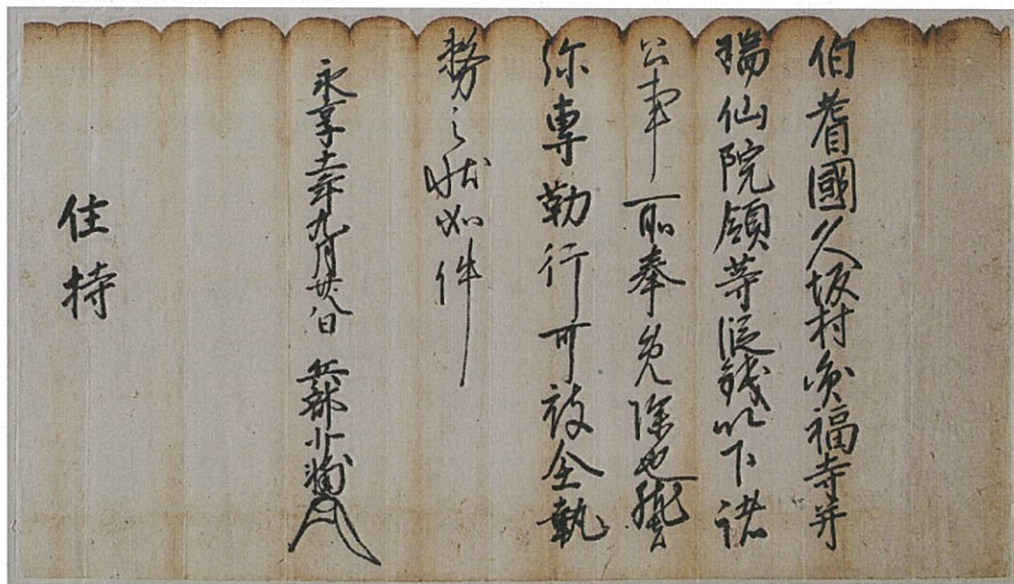 伯耆國久坂村福寺并
瑞仙院領等段銭以下諸
公事所奉免除也
弥専勤行可被全執
務之状如件
永享十一年九月廿八日 兵部少輔
住持